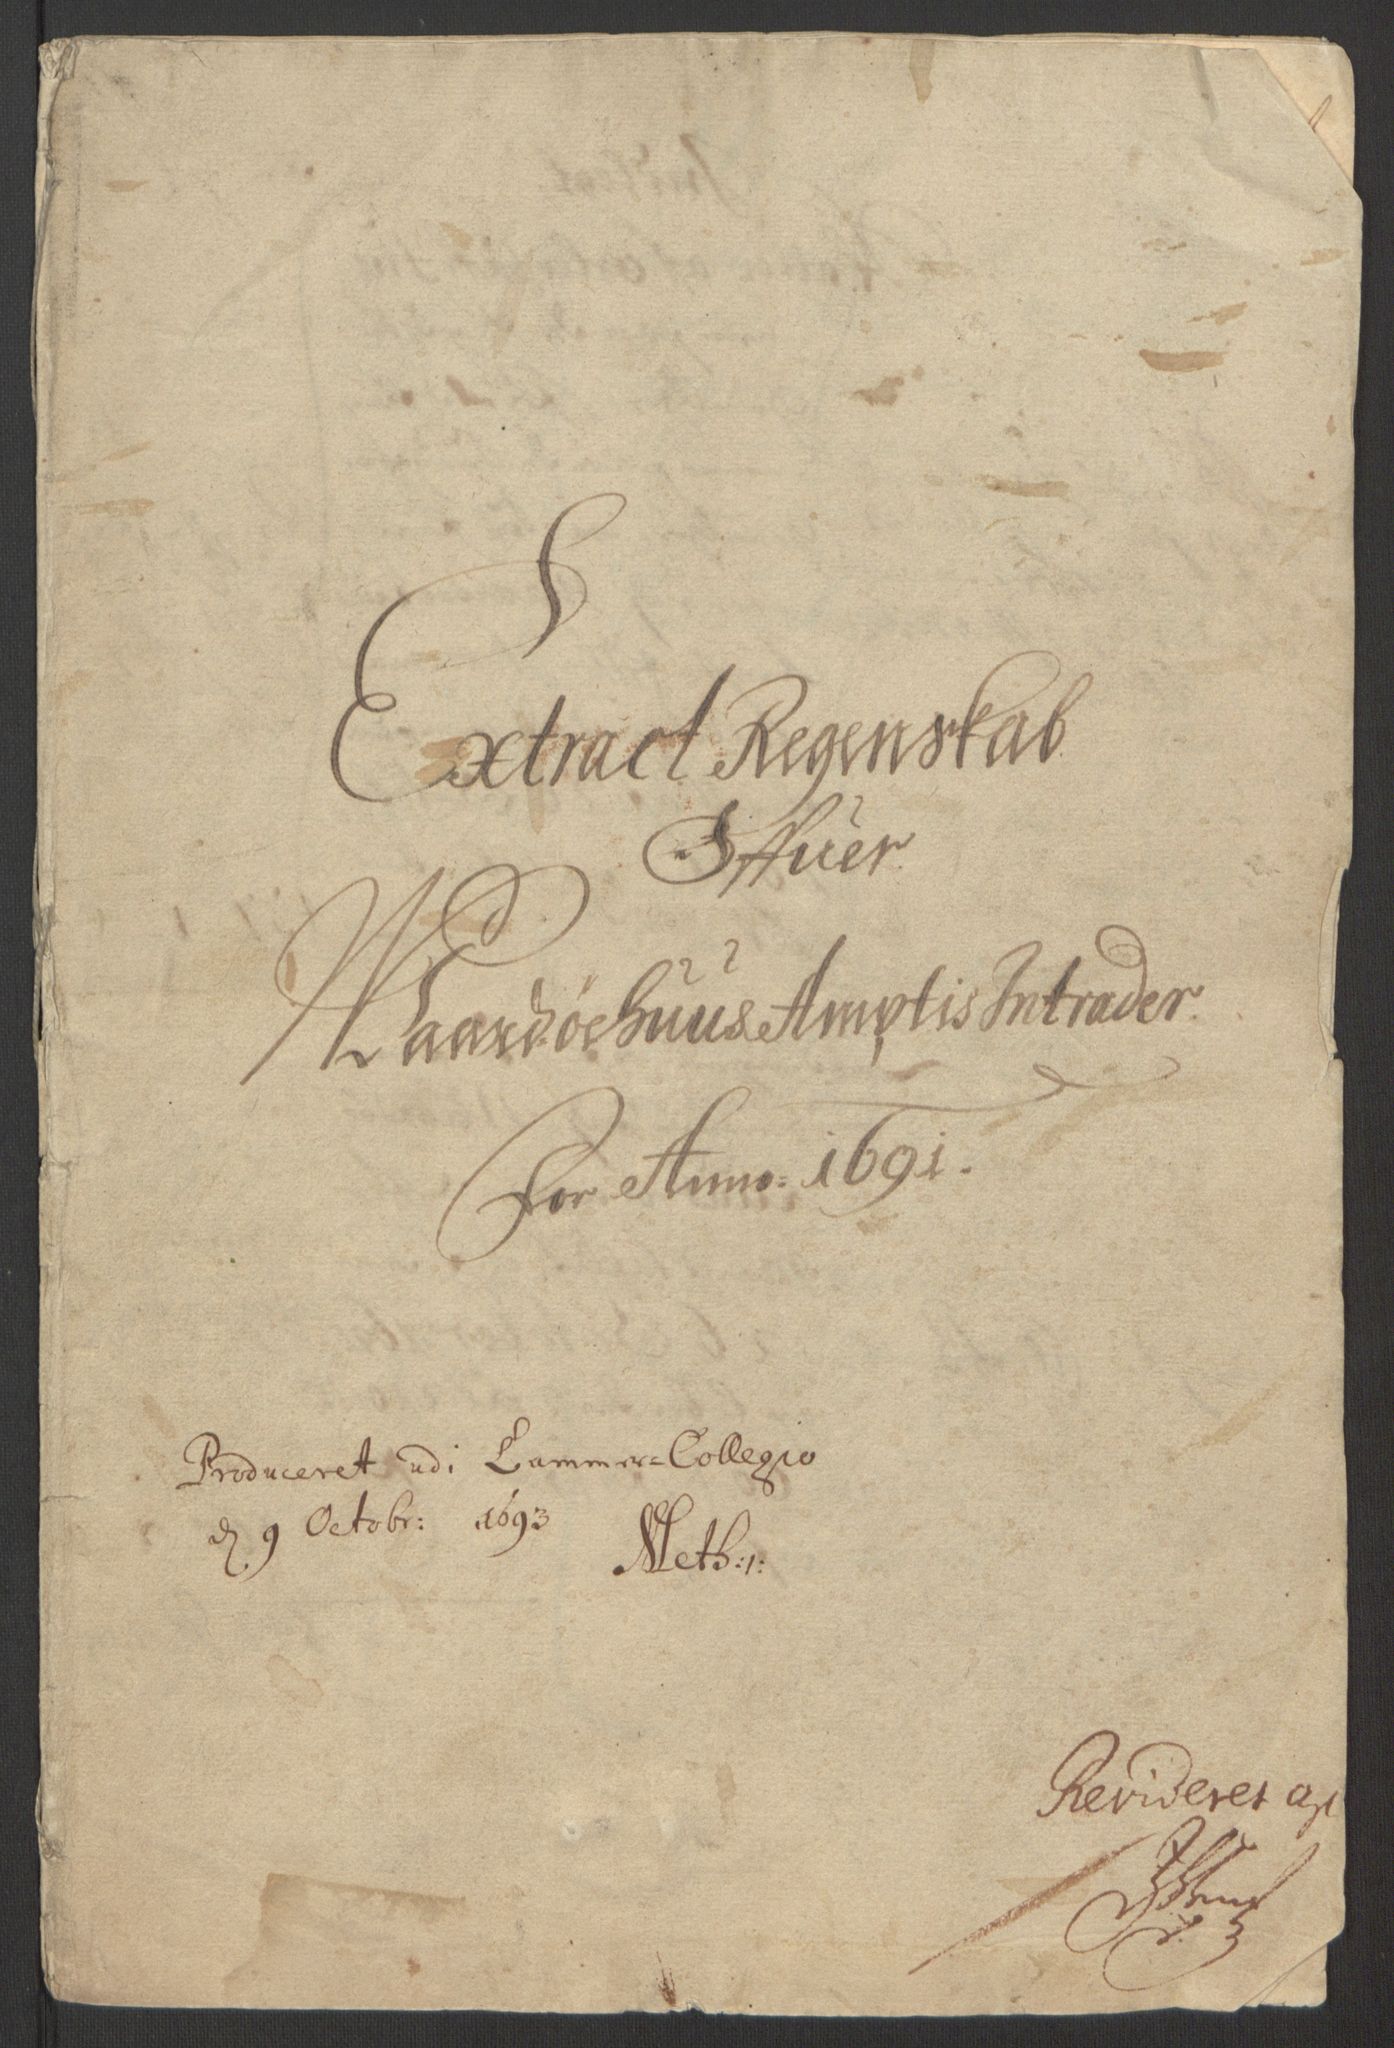 Extract Regenskab
Offuer
Waardøehuus Amptis Intrader
For Anno: 1691.
Produceret udi Cammer-Collegio
d. 9 Octobr: 1693
Meth:
Revideret af